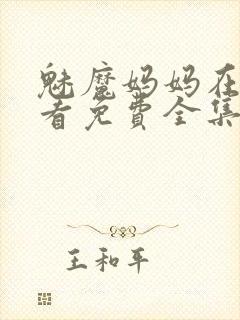 魅魔妈妈在
看免费全集
王和平